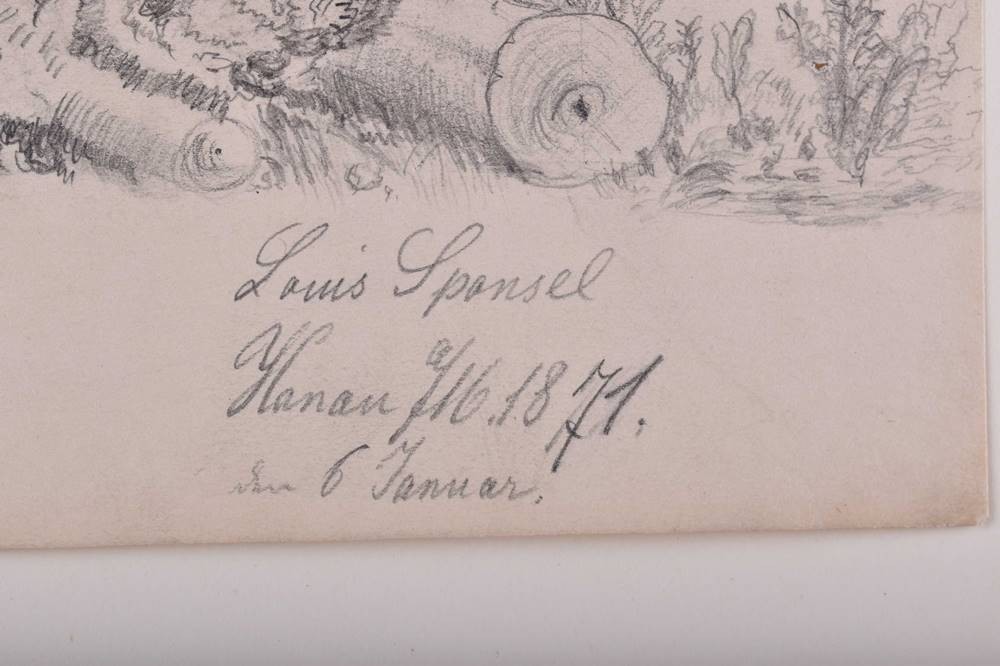 Louis Sponsel
Hanau a/M. 1871.
den 6 Januar.